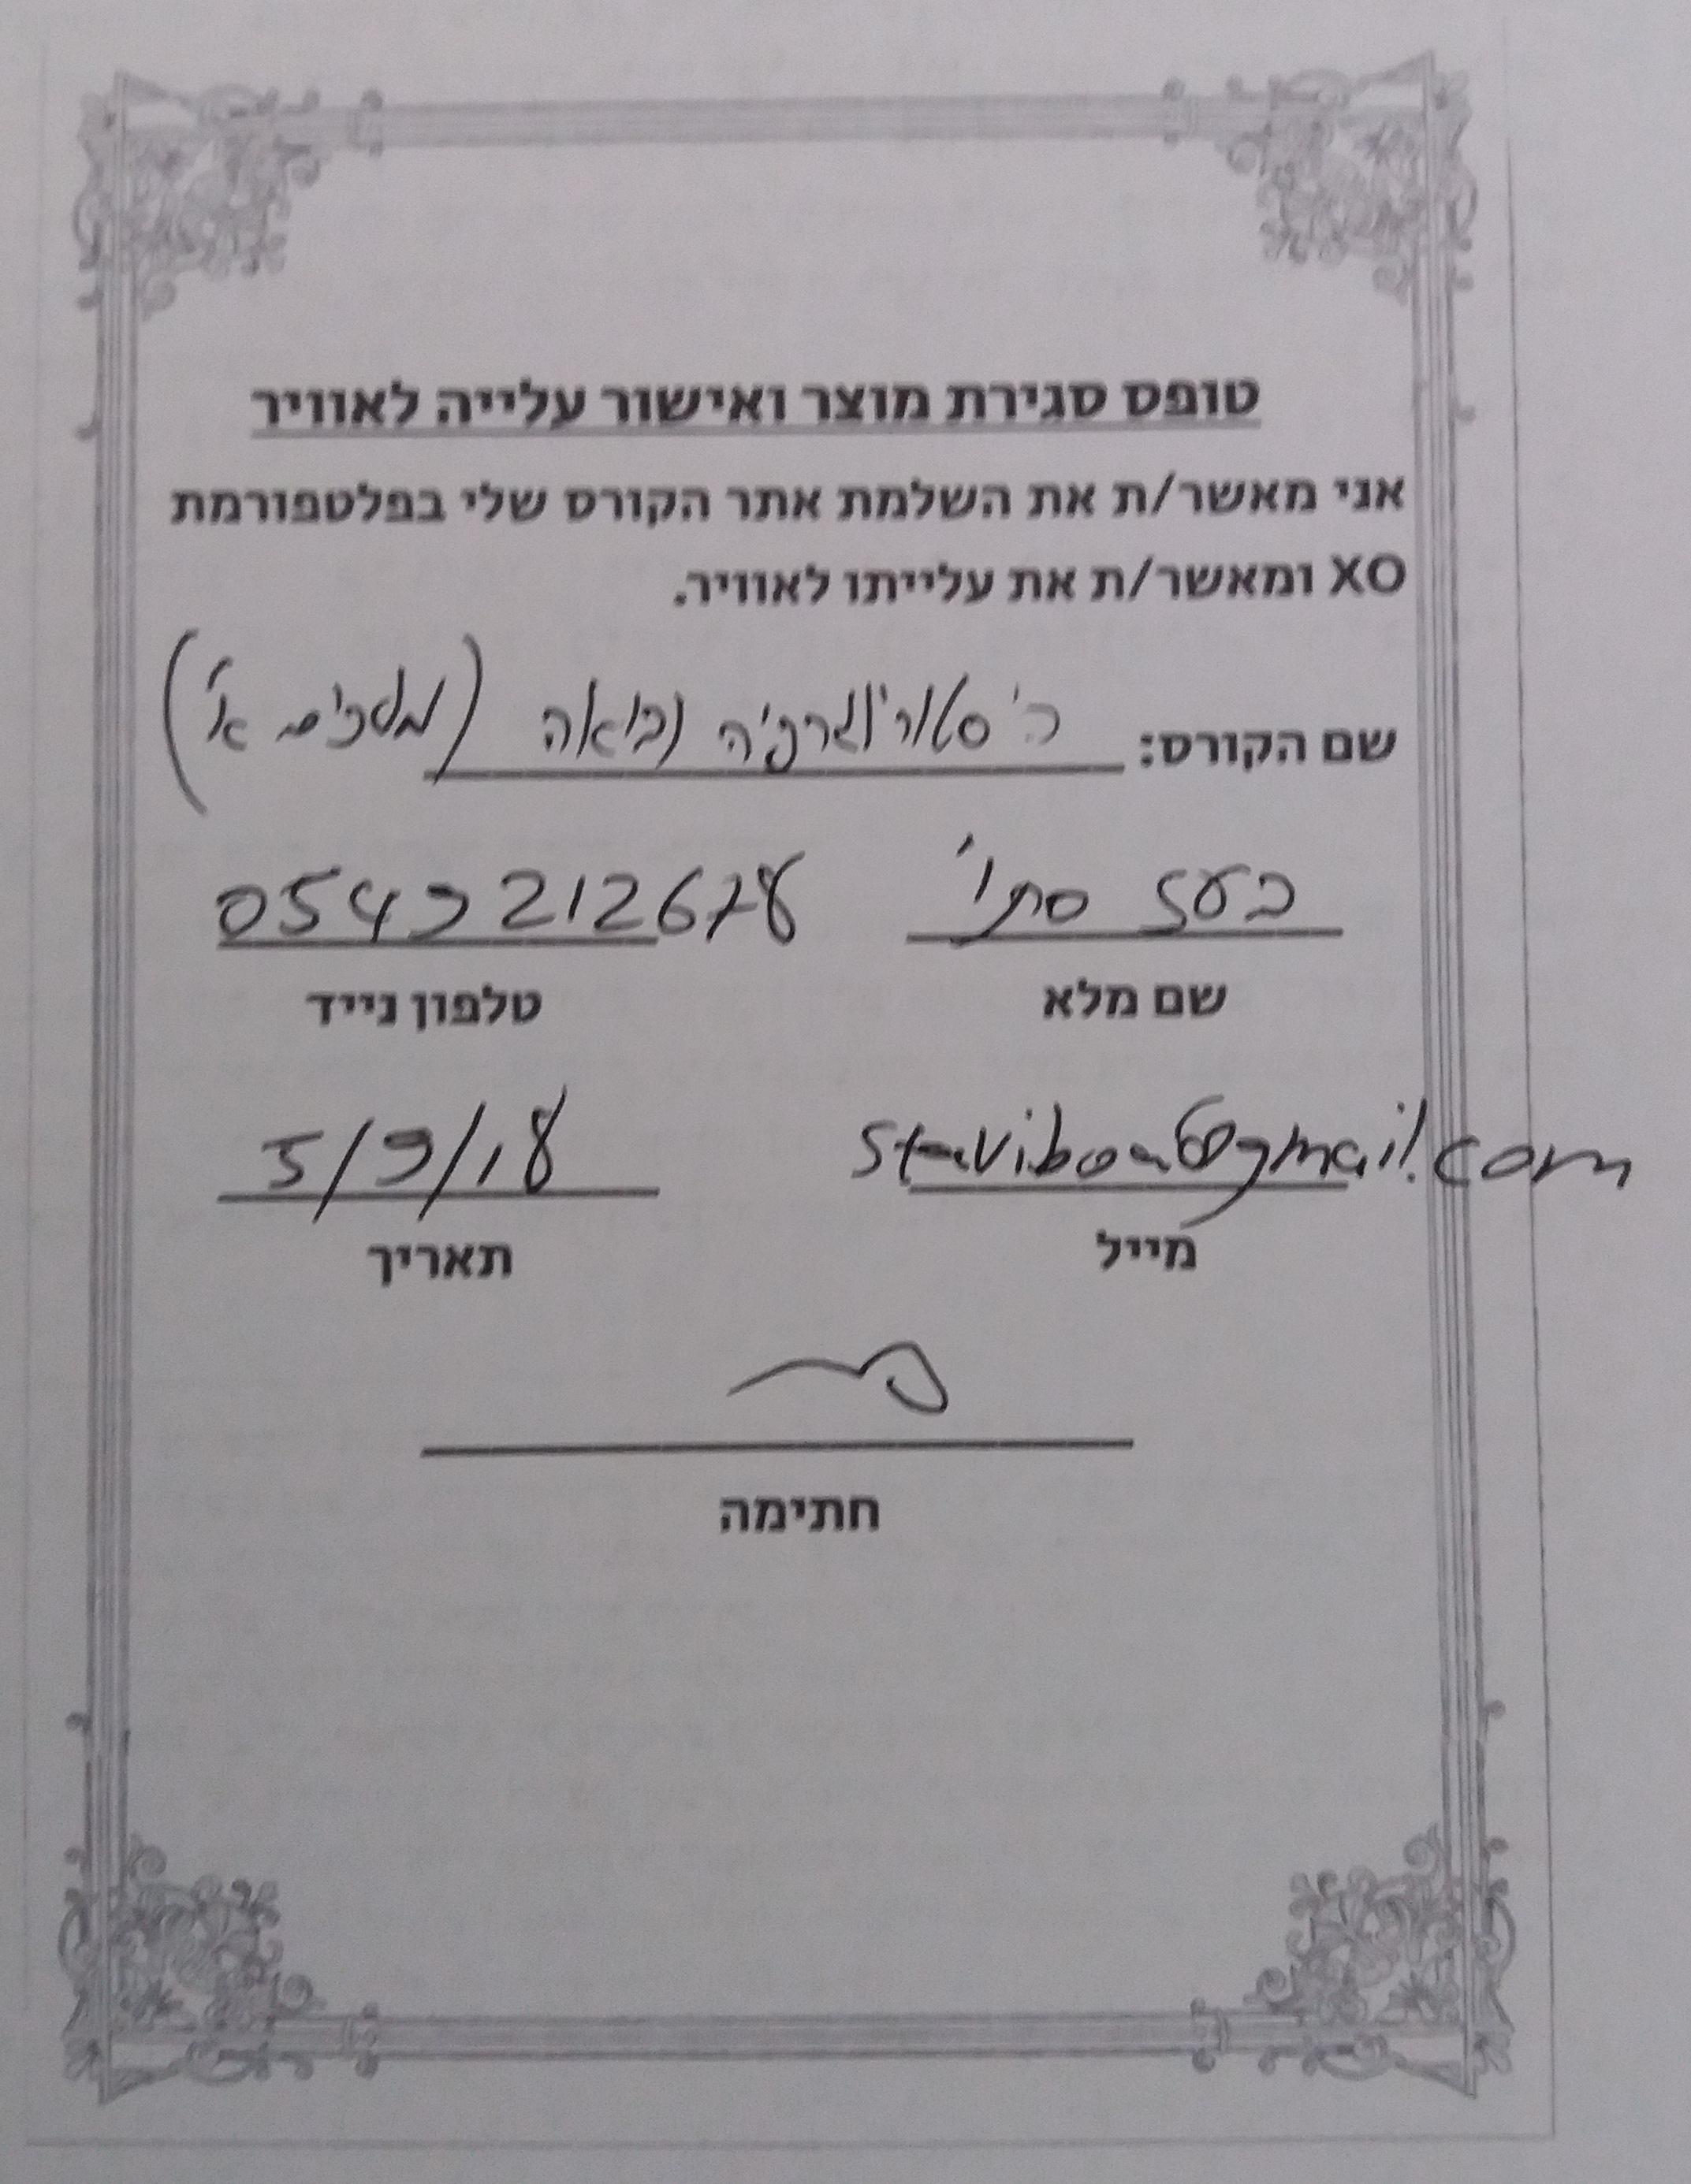 טופס סגירת מוצר ואישור עלייה לאוויר
אני מאשר/ת את השלמת אתר הקורס שלי בפלטפורמת
XO ומאשר/ת את עלייתו לאוויר.
שם הקורס: היסטוריוגרפיה נבואה (מלכים א')
בעז סתוי 0543212678
שם מלא טלפון נייד
staviboa6@gmail.com 5/9/18
מייל תאריך
חתימה